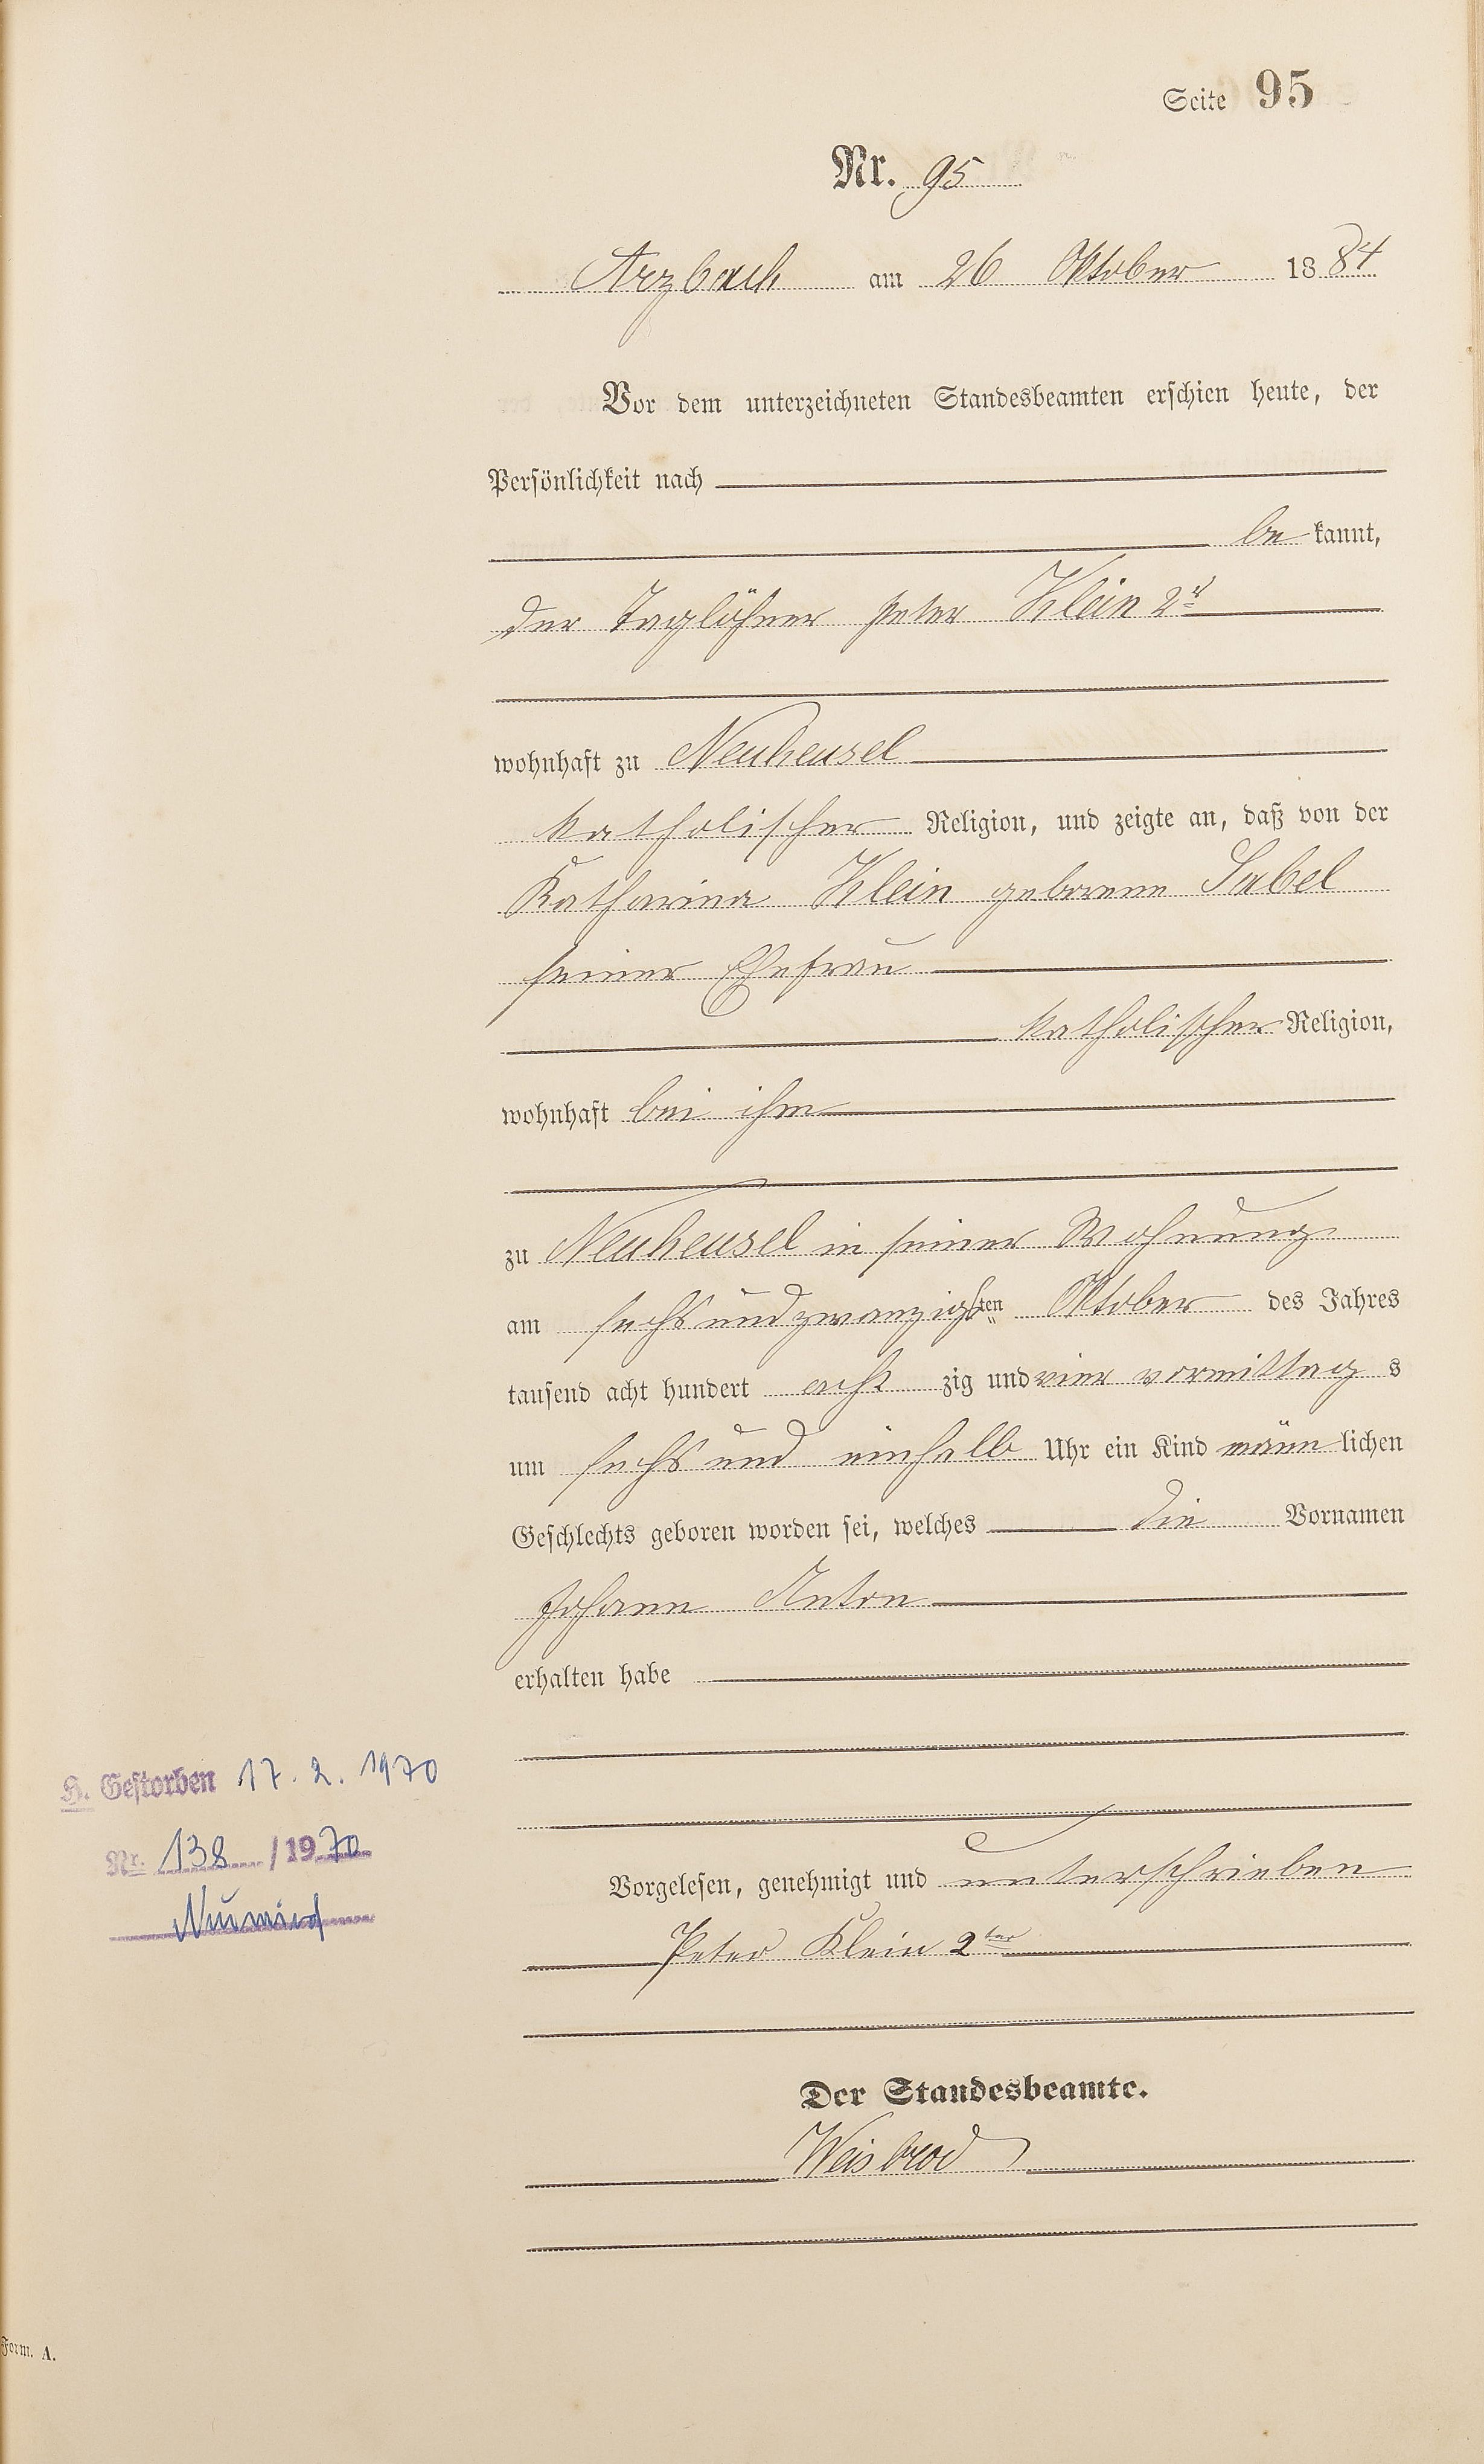 Seite 95
Nr. 95
Arzbach am 26 Oktober 1884
Vor dem unterzeichneten Standesbeamten erschien heute, der
Persönlichkeit nach
be kannt,
der Taglöhner Peter Klein 2r
wohnhaft zu Neuheusel
katholischer Religion, und zeigte an, daß von der
Katharina Klein geborene Sabel
seiner Ehefrau
katholischer Religion,
wohnhaft bei ihm
zu Neuheusel in seiner Wohnung
am sechsundzwanzigsten Oktober des Jahres
tausend acht hundert acht zig und vier vormittag s
um sechs und einhalb Uhr ein Kind männ lichen
Geschlechts geboren worden sei, welches die Vornamen
Johann Anton
erhalten habe
Vorgelesen, genehmigt und unterschrieben
Peter Klein 2ter
Der Standesbeamte.
Weisbrod
H. Gestorben 17. 2. 1970
Nr. 138 /1970
Neuwied
Form. A.